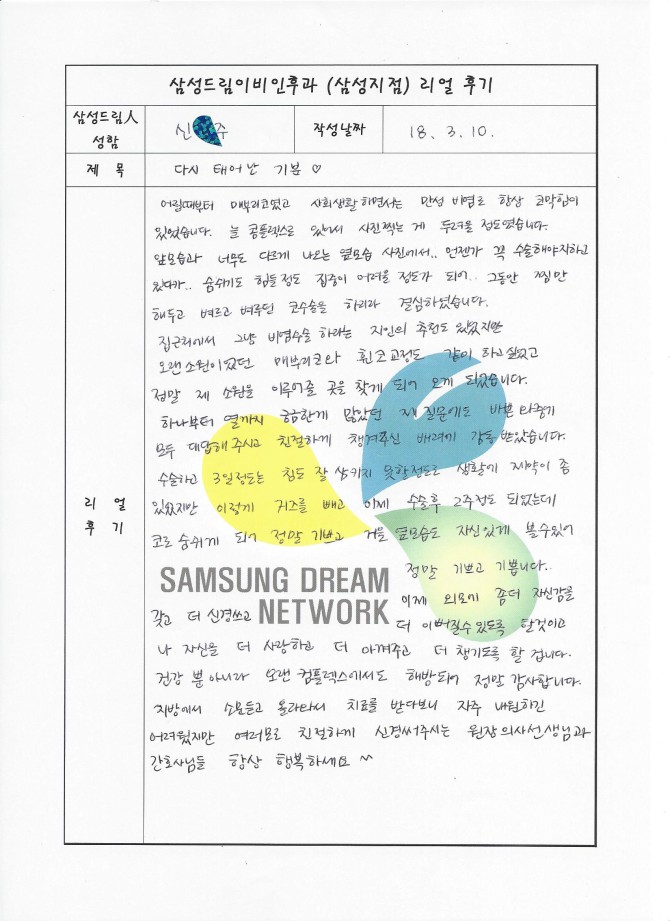 삼성드림이비인후과 (삼성지점) 리얼 후기
삼성드림人 성함
신 주
작성날짜
18. 3. 10.
제 목
다시 태어난 기분 ♡
리 얼
후 기
어릴때부터 매부리코였고 사회생활하면서는 만성 비염로 항상 코막힘이
있었습니다. 늘 콤플렉스로 있어서 사진찍는 게 두려울 정도였습니다.
앞모습과 너무도 다르게 나오는 옆모습 사진에서.. 언젠가 꼭 수술해야지하고
있다가.. 숨쉬기도 힘들정도 집중이 어려울 정도가 되어.. 그동안 찜만
해두고 벼르고 벼루던 코수술을 하리라 결심하였습니다.
집근처에서 그냥 비염수술 하라는 지인의 추천도 있었지만
오랜소원이었던 매부리코와 휜코교정도 같이 하고싶었고
정말 제 소원을 이루어줄 곳을 찾게 되어 오게 되었습니다.
하나부터 열까지 궁금한게 많았던 제 질문에도 바쁜 와중에
모두 대답해주시고 친절하게 챙겨주신 배려에 감동받았습니다.
수술하고 3일정도는 침도 잘 삼키지 못할정도로 생활에 제약이 좀
있었지만 이렇게 거즈를 빼고 이제 수술후 2주정도 되었는데
코로 숨쉬게 되어 정말 기쁘고 거울 옆모습도 자신있게 볼수있어
정말 기쁘고 기쁩니다..
SAMSUNG DREAM
이제 외모에 좀더 자신감을
갖고 더 신경쓰고
NETWORK
더 이뻐질수있도록 할것이고
나 자신을 더 사랑하고 더 아껴주고 더 챙기도록 할 겁니다.
건강 뿐아니라 오랜 컴플렉스에서도 해방되어 정말 감사합니다.
지방에서 소문듣고 올라와서 치료를 받다보니 자주 내원하긴
어려웠지만 여러모로 친절하게 신경써주시는 원장의사선생님과
간호사님들 항상 행복하세요 ~